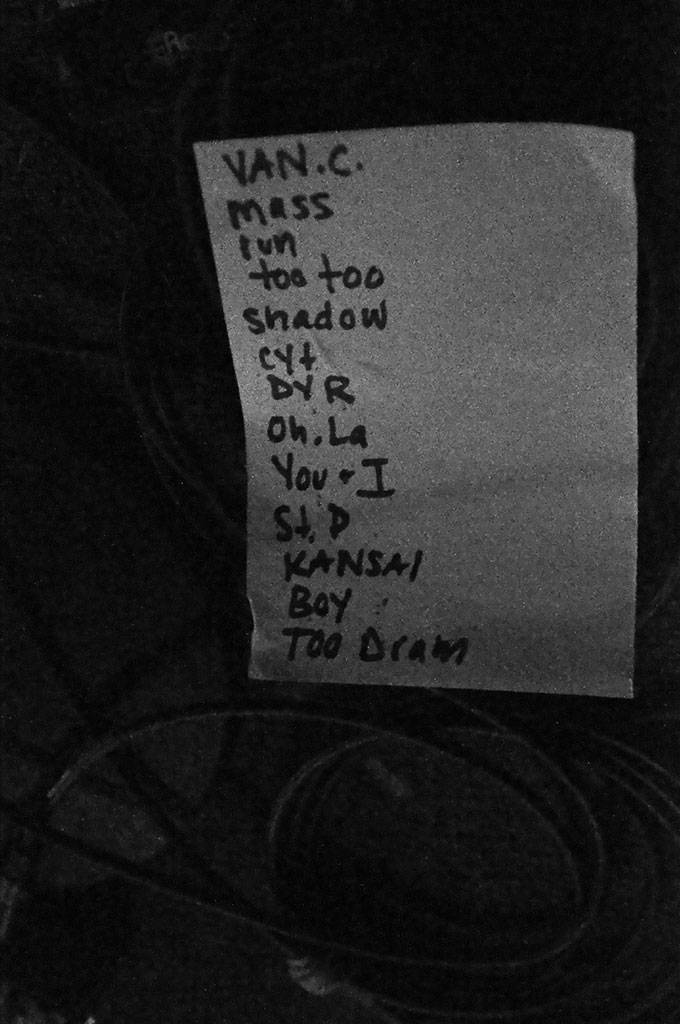 VAN.C.
mass
run
too too
shadow
cyt
DYR
Oh.La
You + I
St. D
KANSAI
BOY
TOO Dram